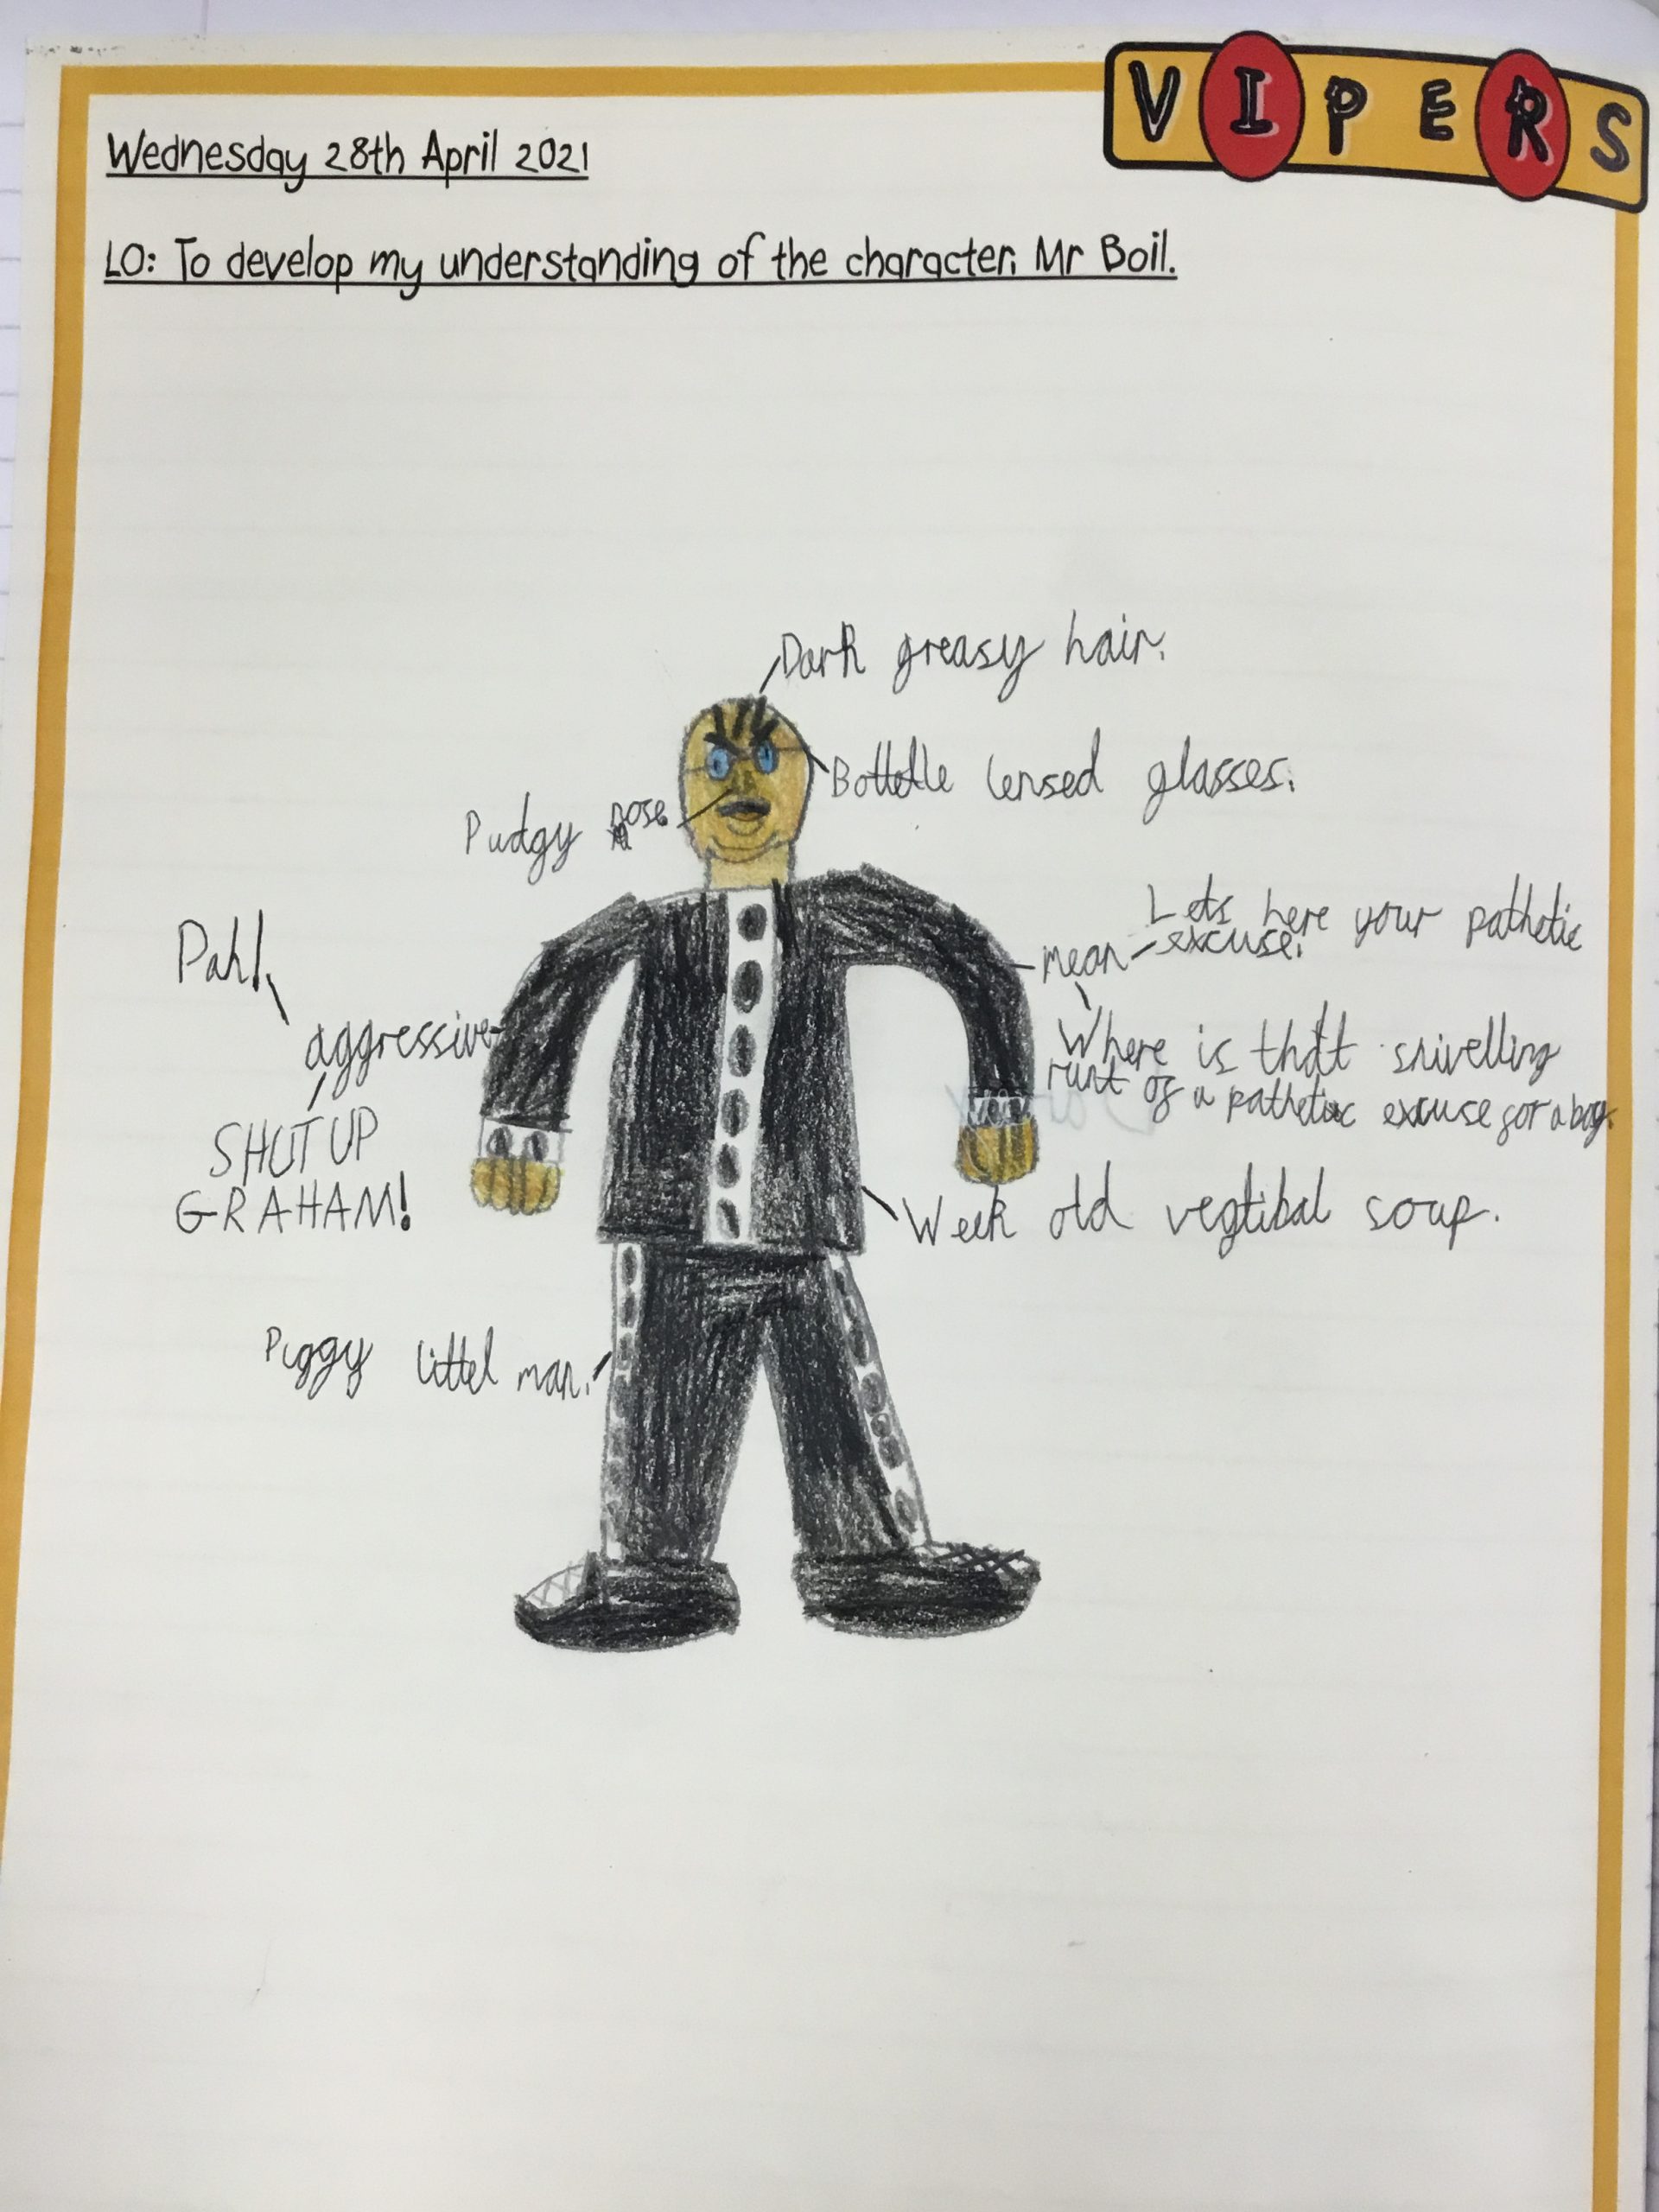 VIPERS
Wednesday 28th April 2021
LO: To develop my understanding of the character, Mr Boil.
Dark greasy hair.
Bottelle lensed glasses.
Pudgy nose.
Lets here your pathetic
excuse.
mean
Pah!
aggressive
Where is that snivelling
runt of a pathetic excuse for a boy.
SHUT UP
GRAHAM!
Week old vegtibal soup.
Piggy littel man.